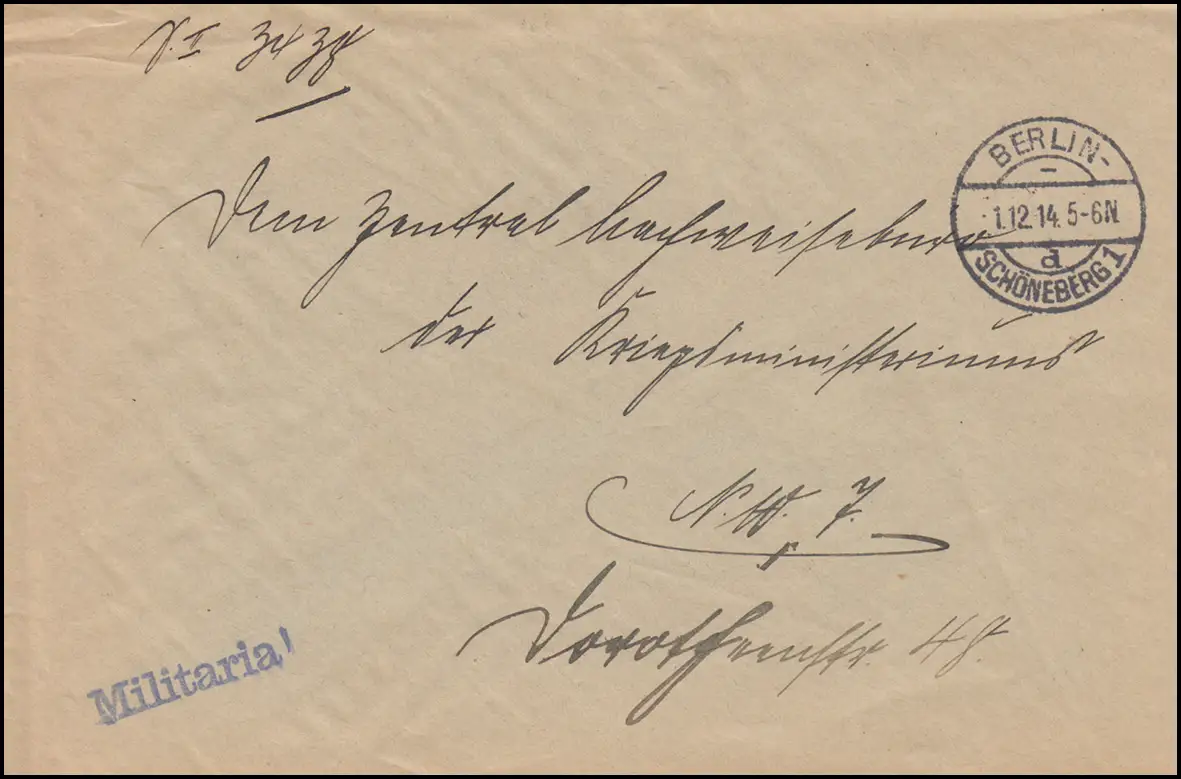 BERLIN-
1.12.14. 5-6N.
a
SCHÖNEBERG 1
Dem Zentral Nachweisebureau
des Kriegsministeriums
N.W. 7.
Dorotheenstr. 48.
Militaria!